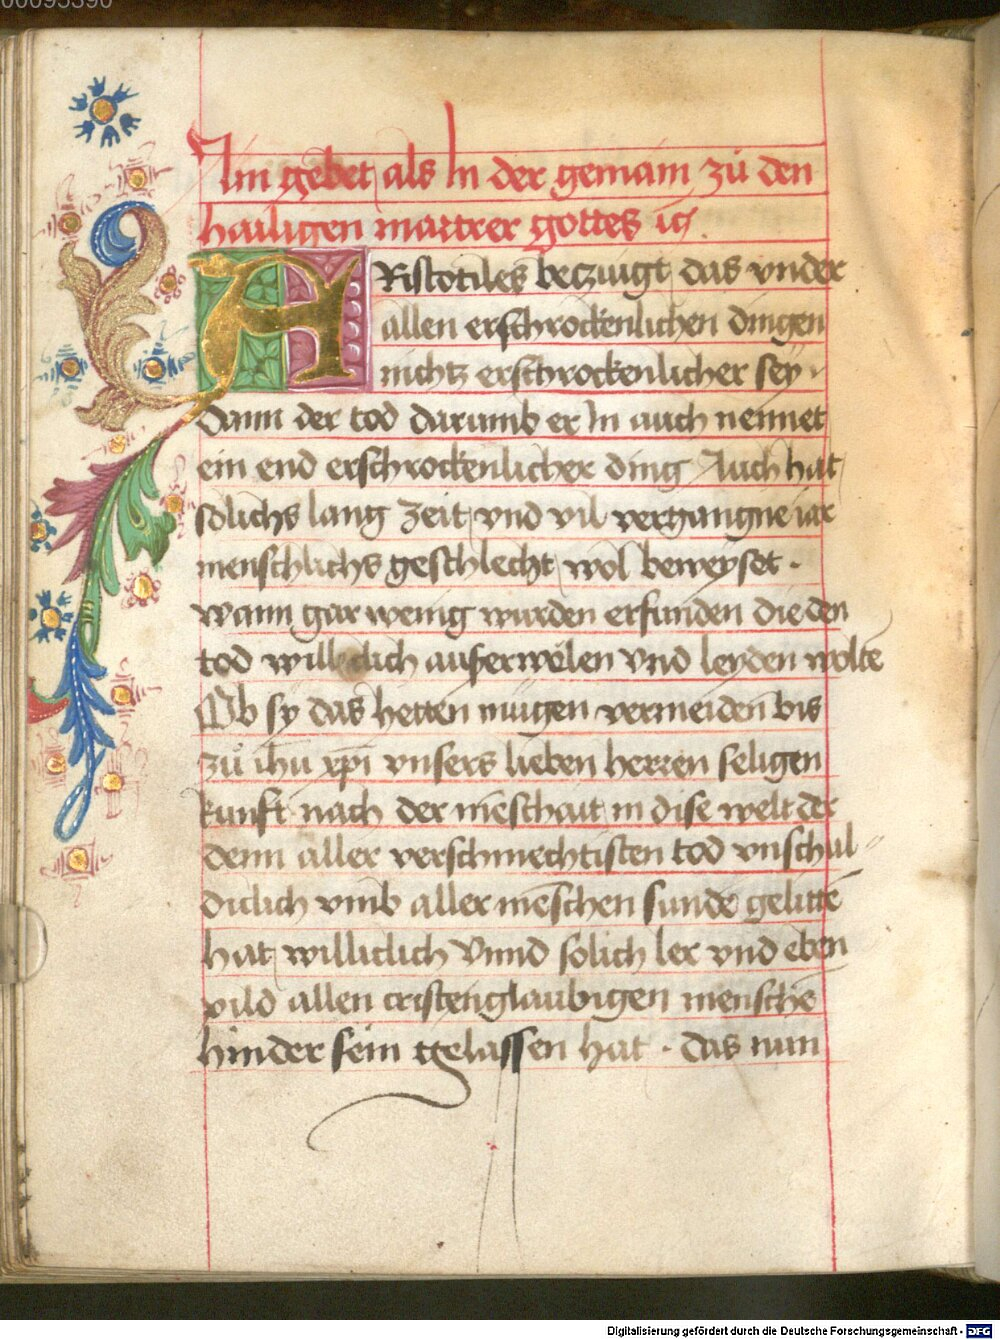 00095390
Ain gebet als In der gemain zů den
hailigen martrer gottes ⁊c̃.
ARistotiles beczuigt das vnder
allen erschrockenlichen dingen
nichtz erschrockenlicher sey ·
dann der tod darumb er In auch nennet
ein end erschrockenlicher ding Auch hat
sölichs lang Zeit vnd vil vergangne iar
menschlichs geschlecht wol beweyset ·
wann gar wenig wurden erfunden die den
tod williclich auserwölen vnd leyden wolte
Ob sy das hetten mugen vermeiden bis
zů ihu xpi vnsers lieben herren seligen
kunft nach der mẽschait in dise welt der
denn aller verschmechtisten tod vnschul〃
diclich vmb aller mẽschen sunde gelittẽ
hat williclich Vnnd solich ler vnd eben
pild allen cristenglaubigen menschẽ
hinder sein gelassen hat · das nun
Digitalisierung gefördert durch die Deutsche Forschungsgemeinschaft - DFG